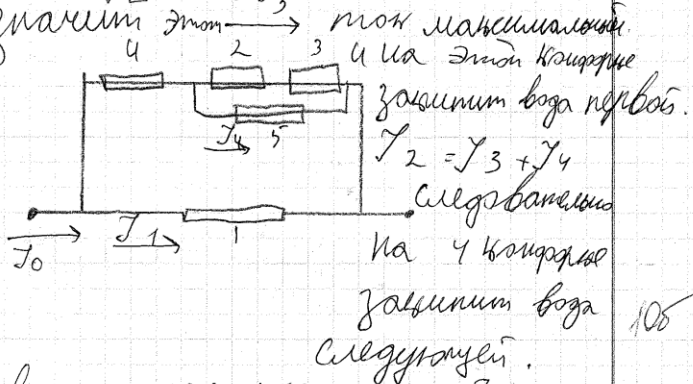 значит этот → ток максимальный
4 2 3 и на этой конфорке
закипит вода первой.
J4 5
J2 = J3 + J4
следовательно
J0 J1 1
на 4 конфорке
закипит вода 10б
следующей.